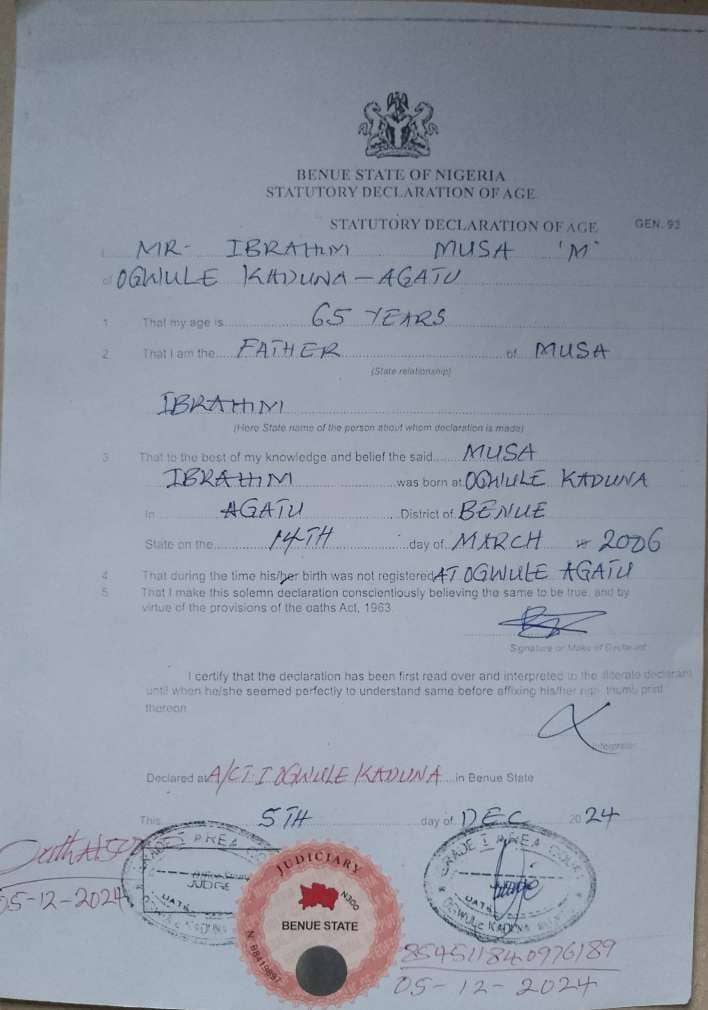 BENUE STATE OF NIGERIA
STATUTORY DECLARATION OF AGE
STATUTORY DECLARATION OF AGE GEN. 92
I MR- IBRAHIM MUSA 'M'
of OGWULE KADUNA - AGATU
1 That my age is 65 YEARS
2 That I am the FATHER of MUSA
(State relationship)
IBRAHIM
(Here State name of the person about whom declaration is made)
3 That to the best of my knowledge and belief the said MUSA
IBRAHIM was born at OGWULE KADUNA
In AGATU District of BENUE
State on the 14TH day of MARCH 2006
4 That during the time his/her birth was not registered AT OGWULE AGATU
5 That I make this solemn declaration conscientiously believing the same to be true, and by
virtue of the provisions of the oaths Act, 1963.
Signature or Make of Declarant
I certify that the declaration has been first read over and interpreted to the illiterate declarant
until when he/she seemed perfectly to understand same before affixing his/her thumb print
thereon
Declared at A/CT I OGWULE KADUNA in Benue State
This 5TH day of DEC 2024
GRADE I AREA
JUDGE
DATE
05-12-2024
JUDICIARY
N300
BENUE STATE
GRADE I AREA COURT
DATE
OGWULE KADUNA
854511840976189
05-12-2024